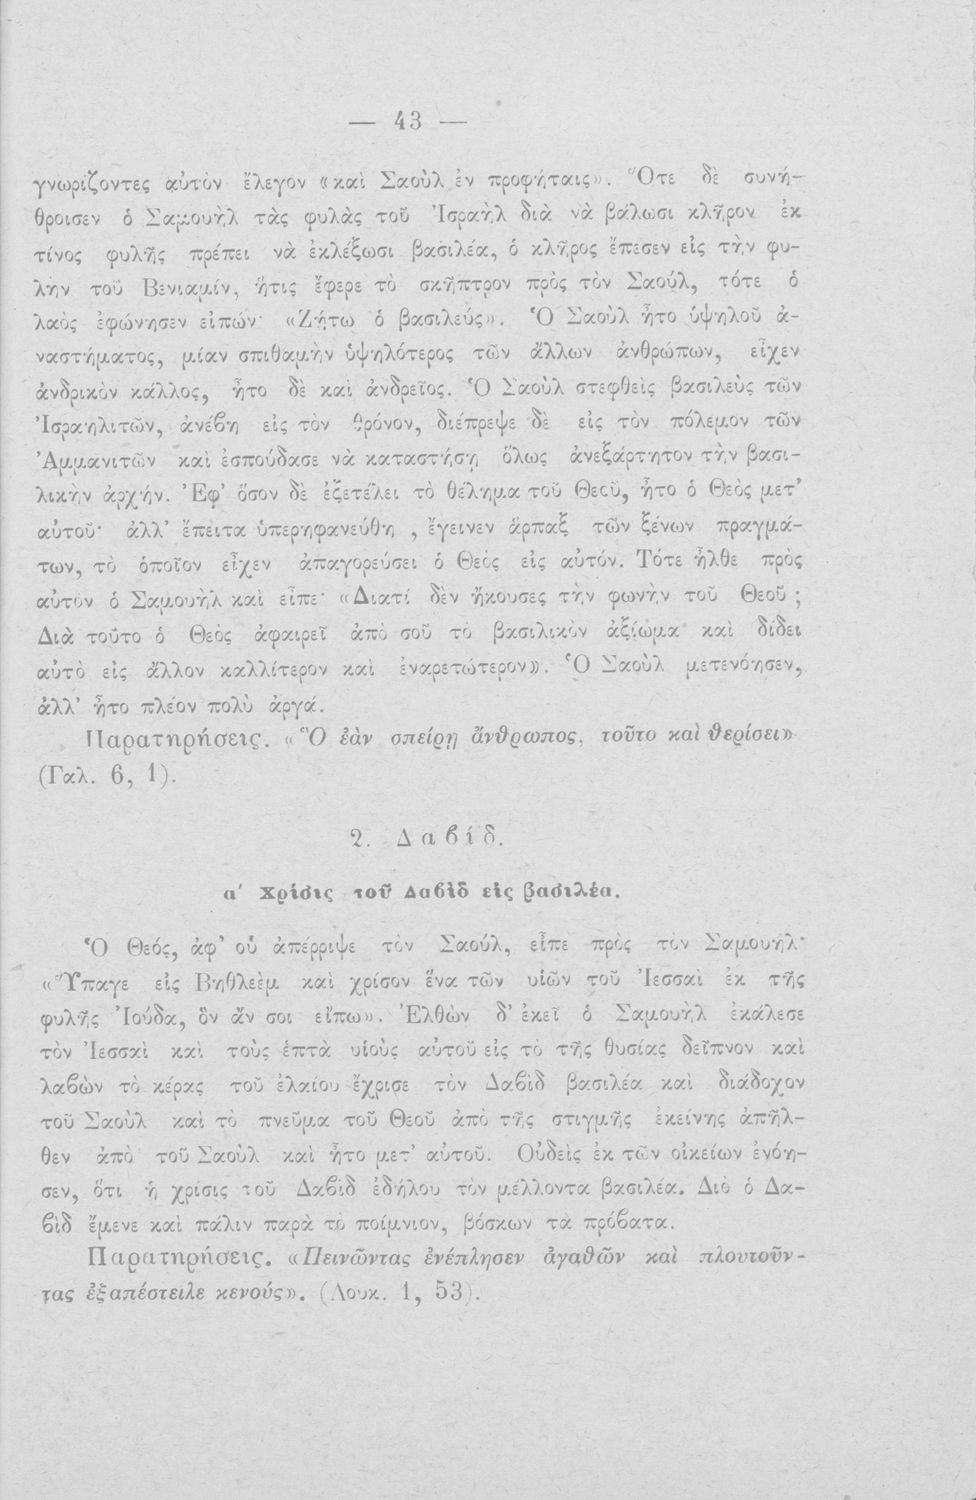 — 43 —
γνωρίζοντες αὐτὸν ἔλεγον «καὶ Σαοὺλ ἐν προφήταις». Ὅτε δὲ συνή-
θροισεν ὁ Σαμουὴλ τὰς φυλὰς τοῦ Ἰσραὴλ διὰ νὰ βάλωσι κλῆρον ἐκ
τίνος φυλῆς πρέπει νὰ ἐκλέξωσι βασιλέα, ὁ κλῆρος ἔπεσεν εἰς τὴν φυ-
λὴν τοῦ Βενιαμίν, ἥτις ἔφερε τὸ σκῆπτρον πρὸς τὸν Σαούλ, τότε ὁ
λαὸς ἐφώνησεν εἰπών· «Ζήτω ὁ βασιλεύς». Ὁ Σαοὺλ ἦτο ὑψηλοῦ ἀ-
ναστήματος, μίαν σπιθαμὴν ὑψηλότερος τῶν ἄλλων ἀνθρώπων, εἶχεν
ἀνδρικὸν κάλλος, ἦτο δὲ καὶ ἀνδρεῖος. Ὁ Σαοὺλ στεφθεὶς βασιλεὺς τῶν
Ἰσραηλιτῶν, ἀνέβη εἰς τὸν θρόνον, διέπρεψε δὲ εἰς τὸν πόλεμον τῶν
Ἀμμανιτῶν καὶ ἐσπούδασε νὰ καταστήσῃ ὅλως ἀνεξάρτητον τὴν βασι-
λικὴν ἀρχήν. Ἐφ' ὅσον δὲ ἐξετέλει τὸ θέλημα τοῦ Θεοῦ, ἦτο ὁ Θεὸς μετ'
αὐτοῦ· ἀλλ' ἔπειτα ὑπερηφανεύθη , ἔγεινεν ἅρπαξ τῶν ξένων πραγμά-
των, τὸ ὁποῖον εἶχεν ἀπαγορεύσει ὁ Θεὸς εἰς αὐτόν. Τότε ἦλθε πρὸς
αὐτὸν ὁ Σαμουὴλ καὶ εἶπε· «Διατί δὲν ἤκουσες τὴν φωνὴν τοῦ Θεοῦ ;
Διὰ τοῦτο ὁ Θεὸς ἀφαιρεῖ ἀπὸ σοῦ τὸ βασιλικὸν ἀξίωμα καὶ δίδει
αὐτὸ εἰς ἄλλον καλλίτερον καὶ ἐναρετώτερον». Ὁ Σαοὺλ μετενόησεν,
ἀλλ' ἦτο πλέον πολὺ ἀργά.
Παρατηρήσεις. «Ὃ ἐὰν σπείρῃ ἄνθρωπος, τοῦτο καὶ θερίσει»
(Γαλ. 6, 1).
2. Δαβίδ.
α' Χρίσις τοῦ Δαβὶδ εἰς βασιλέα.
Ὁ Θεός, ἀφ' οὗ ἀπέρριψε τὸν Σαούλ, εἶπε πρὸς τὸν Σαμουήλ·
«Ὕπαγε εἰς Βηθλεὲμ καὶ χρίσον ἕνα τῶν υἱῶν τοῦ Ἰεσσαὶ ἐκ τῆς
φυλῆς Ἰούδα, ὃν ἄν σοι εἴπω». Ἐλθὼν δ' ἐκεῖ ὁ Σαμουὴλ ἐκάλεσε
τὸν Ἰεσσαὶ καὶ τοὺς ἑπτὰ υἱοὺς αὐτοῦ εἰς τὸ τῆς θυσίας δεῖπνον καὶ
λαβὼν τὸ κέρας τοῦ ἐλαίου ἔχρισε τὸν Δαβὶδ βασιλέα καὶ διάδοχον
τοῦ Σαοὺλ καὶ τὸ πνεῦμα τοῦ Θεοῦ ἀπὸ τῆς στιγμῆς ἐκείνης ἀπῆλ-
θεν ἀπὸ τοῦ Σαοὺλ καὶ ἦτο μετ' αὐτοῦ. Οὐδεὶς ἐκ τῶν οἰκείων ἐνόη-
σεν, ὅτι ἡ χρίσις τοῦ Δαβὶδ ἐδήλου τὸν μέλλοντα βασιλέα. Διὸ ὁ Δα-
βὶδ ἔμενε καὶ πάλιν παρὰ τὸ ποίμνιον, βόσκων τὰ πρόβατα.
Παρατηρήσεις. «Πεινῶντας ἐνέπλησεν ἀγαθῶν καὶ πλουτοῦν-
τας ἐξαπέστειλε κενούς». (Λουκ. 1, 53).